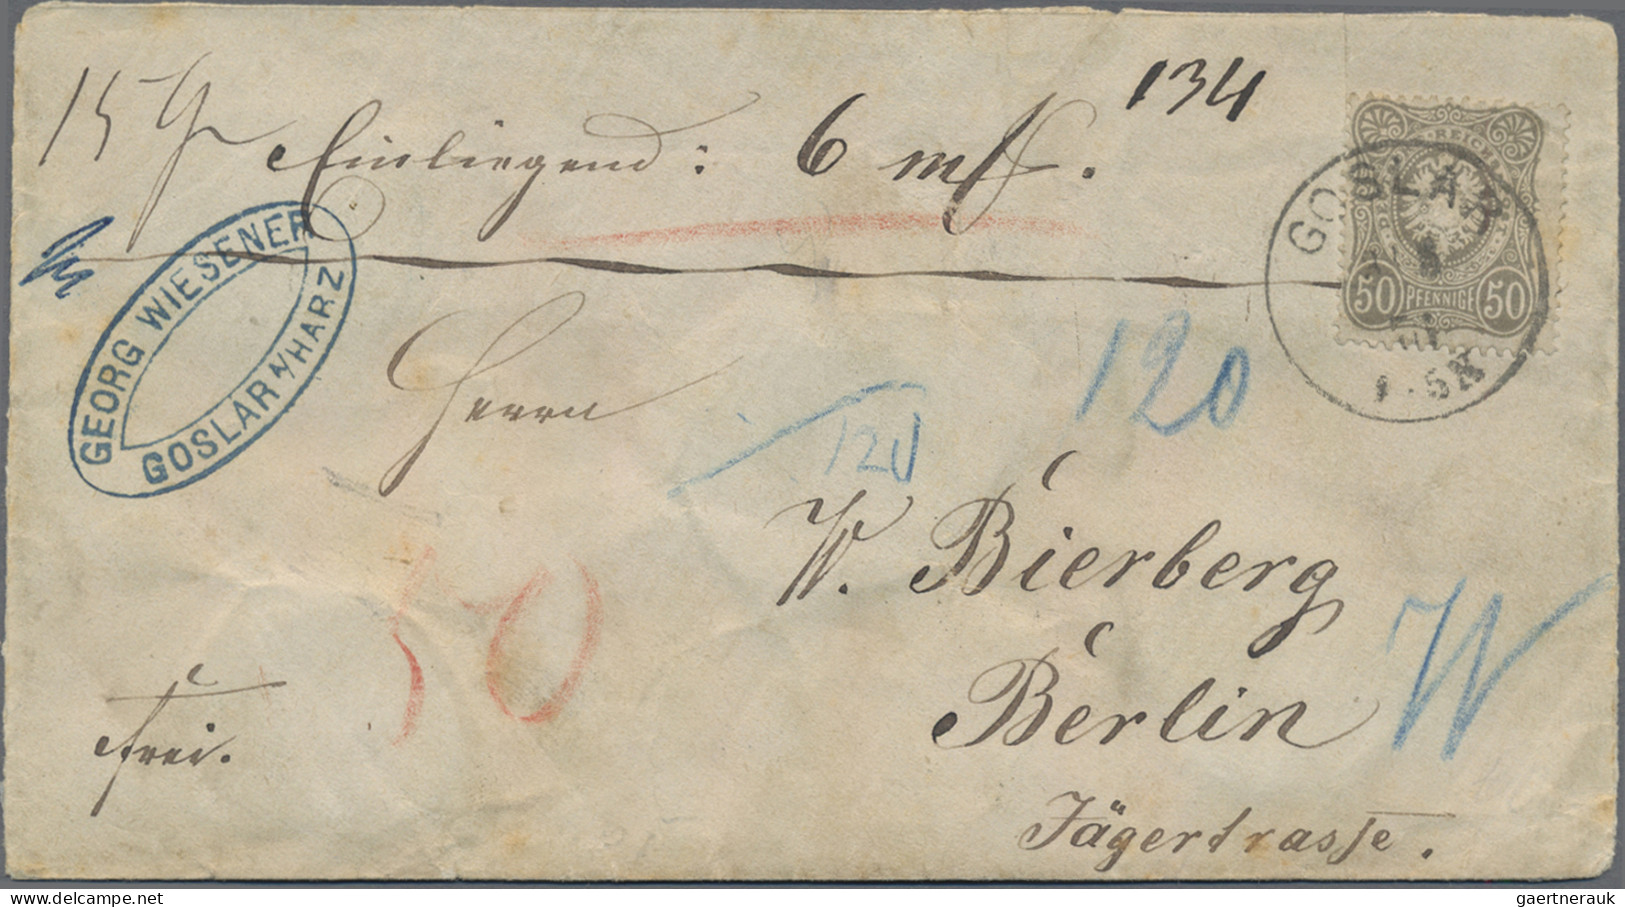 134
15 Einliegend: 6 mk.
GEORG WIESENER
GOSLAR A/HARZ
REICHSPOST
50 PFENNIGE 50
GOSLAR
Herrn
120
120
W. Bierberg
50
W
Berlin
frei.
Jägertrasse.
gaertnerauk